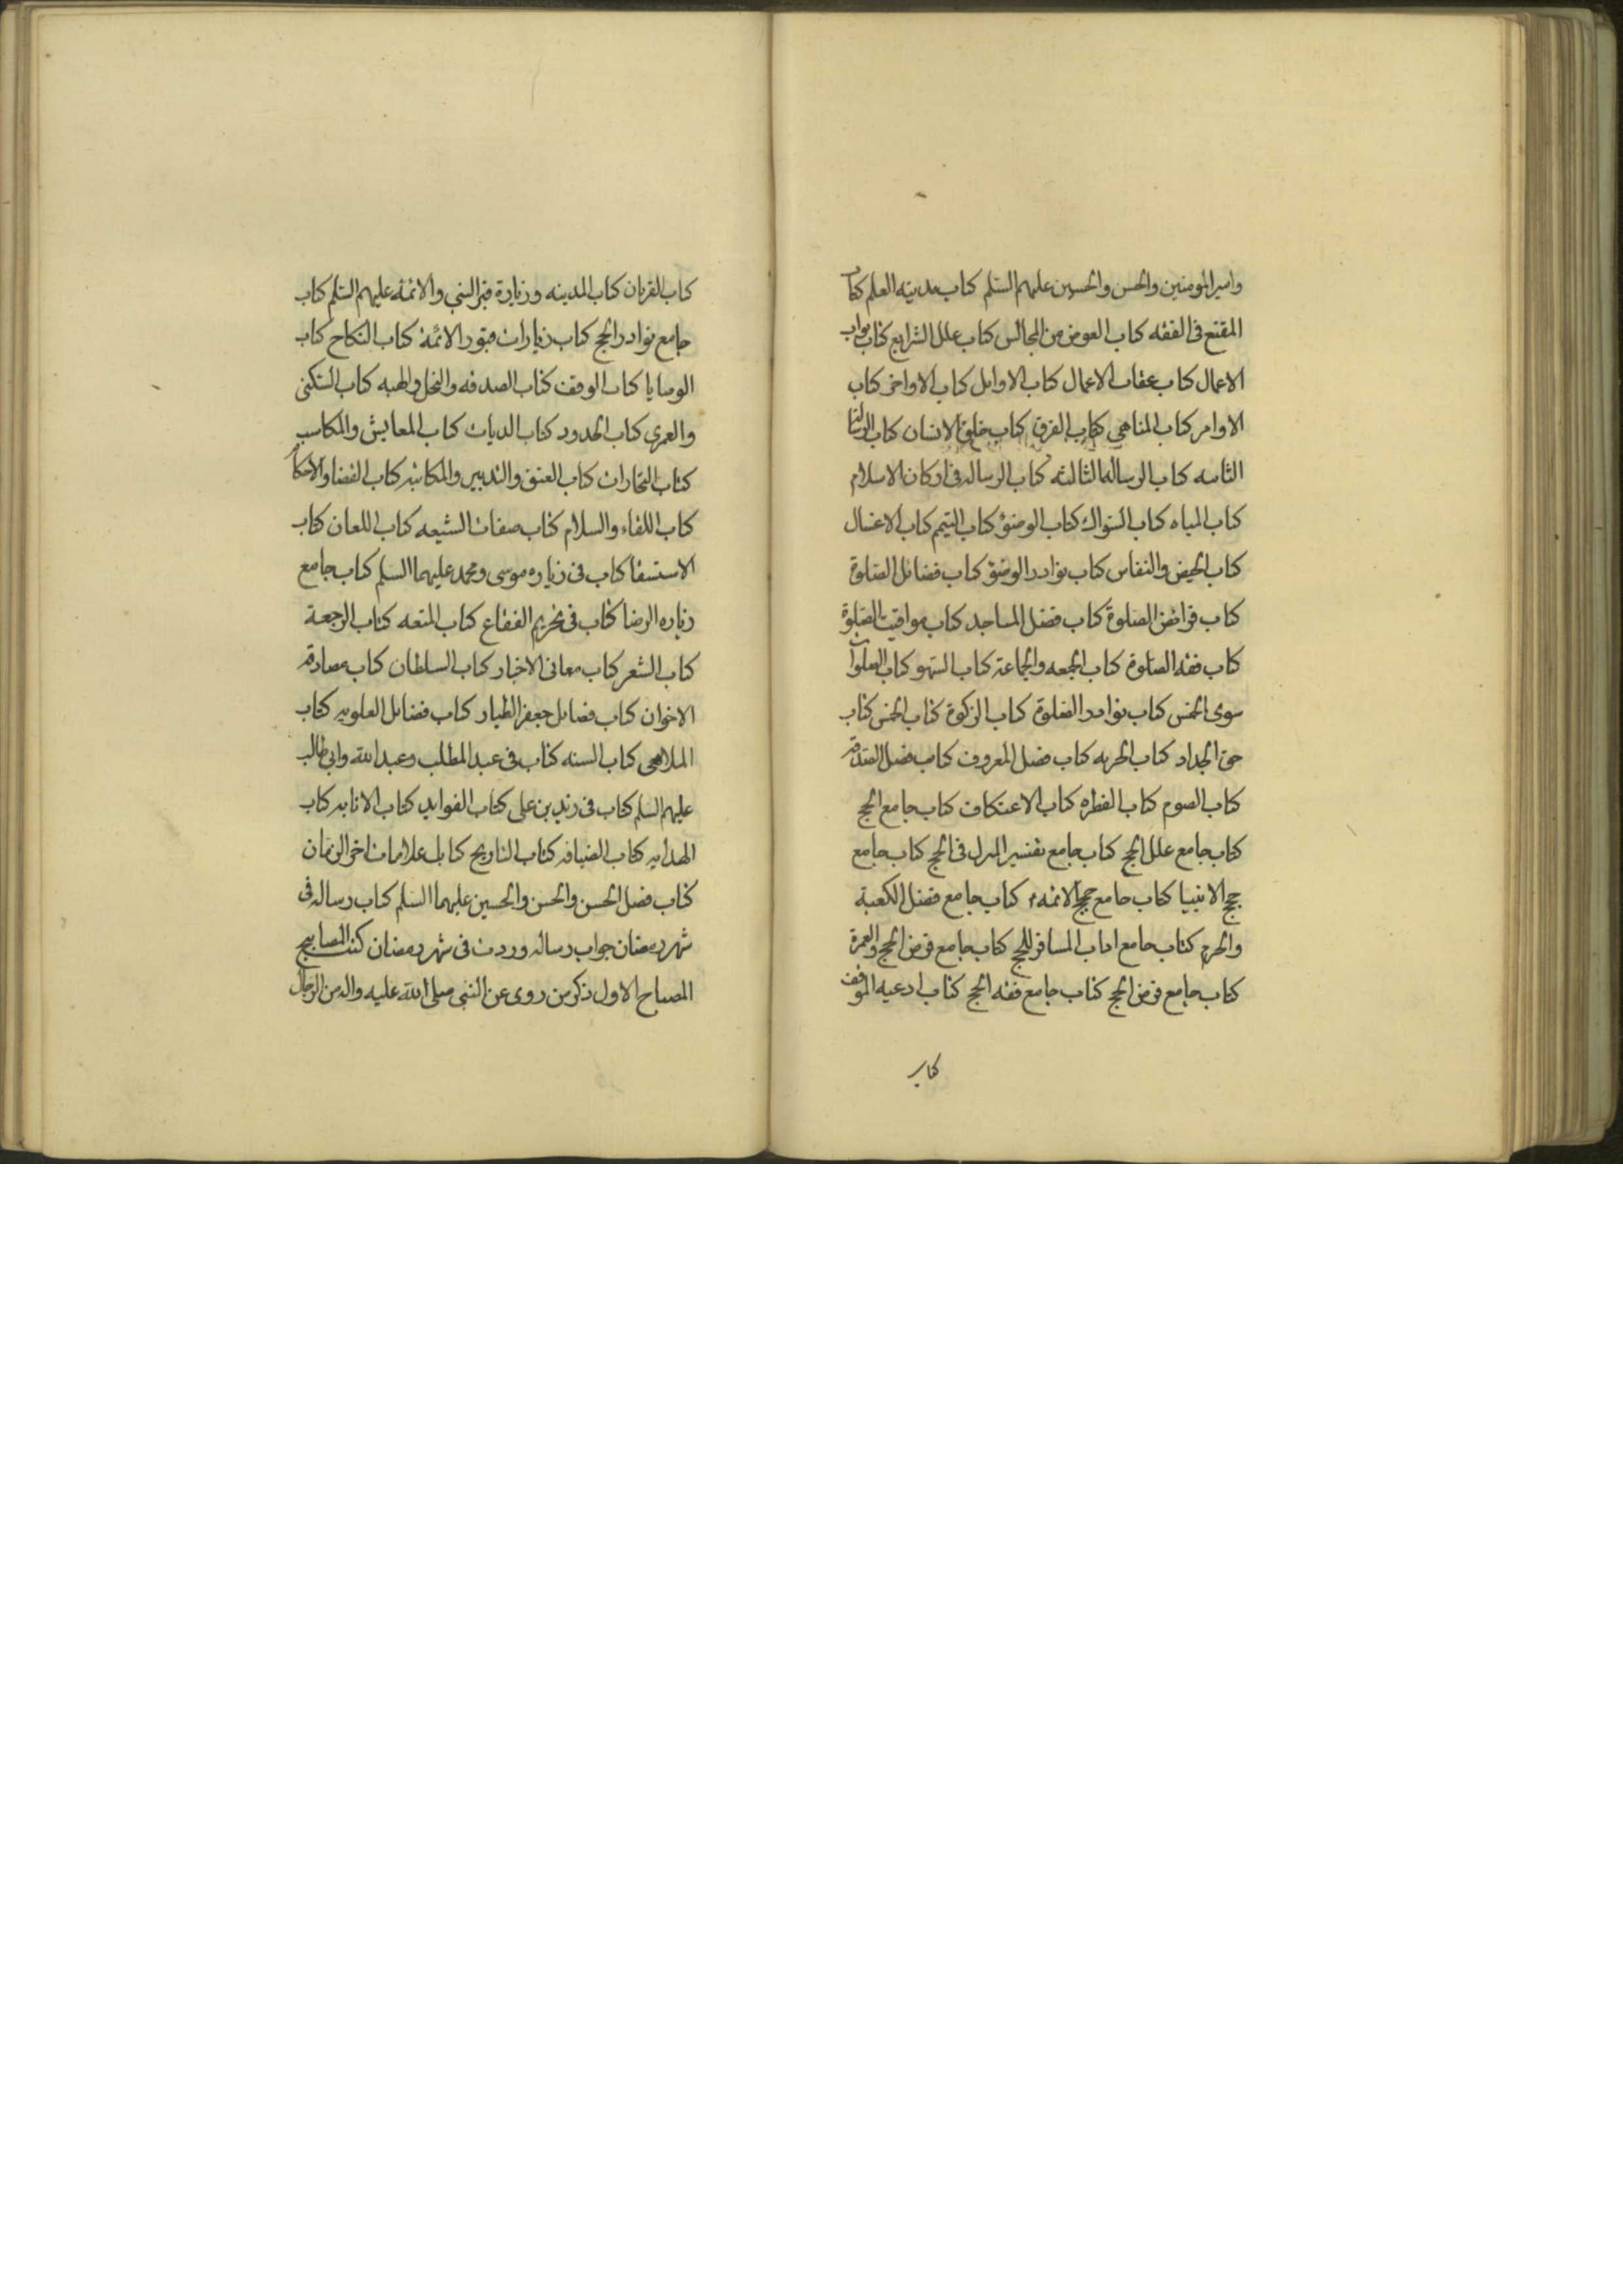 وامير المومنين والحسن والحسين عليهم السلم كتاب مدينه العلم كتاب
المقنع فى الفقه كتاب العوض من المجالس كتاب علل الشرايع كتاب ثواب
الاعمال كتاب عقاب الاعمال كتاب الاوايل كتاب الاواخر كتاب
الاوامر كتاب المناهى كتاب الفرق كتاب خلق الانسان كتاب الرسالة
الثانيه كتاب الرساله الثالثه كتاب الرساله فى اركان الاسلام
كتاب المياه كتاب السواك كتاب الوضؤ كتاب التيمم كتاب الاغسال
كتاب الحيض والنفاس كتاب نوادر الوضؤ كتاب فضائل الصلوة
كتاب فرائض الصلوة كتاب فضل المساجد كتاب مواقيت الصلوة
كتاب فقه الصلوة كتاب الجمعه والجماعة كتاب السهو كتاب الصلوات
سوى الخمس كتاب نوادر الصلوة كتاب الزكوة كتاب الخمس كتاب
حق الجداد كتاب الجزيه كتاب فضل المعروف كتاب فضل الصدقه
كتاب الصوم كتاب الفطره كتاب الاعتكاف كتاب جامع الحج
كتاب جامع علل الحج كتاب جامع تفسير المنزل فى الحج كتاب جامع
حجج الانبيا كتاب جامع حجج الائمه ع كتاب جامع فضل الكعبة
والحرم كتاب جامع اداب المسافر للحج كتاب جامع فرض الحج والعمرة
كتاب جامع فرض الحج كتاب جامع فقه الحج كتاب ادعيه الموقف
كتاب
كتاب القربان كتاب المدينه وزيارة قبر النبى والائمه عليهم السلم كتاب
جامع نوادر الحج كتاب زيارات قبور الائمة كتاب النكاح كتاب
الوصايا كتاب الوقف كتاب الصدقه والنحل والهبه كتاب السكنى
والعمرى كتاب الحدود كتاب الديات كتاب المعايش والمكاسب
كتاب التجارات كتاب العتق والتدبير والمكاتبه كتاب القضا والاحكام
كتاب اللقاء والسلام كتاب صفات الشيعه كتاب اللعان كتاب
الاستسقا كتاب فى زياره موسى ومحمد عليهما السلم كتاب جامع
زياره الرضا كتاب فى تحريم الفقاع كتاب المتعه كتاب الرجعة
كتاب الشعر كتاب معانى الاخبار كتاب السلطان كتاب مصادقه
الاخوان كتاب فضائل جعفر الطيار كتاب فضائل العلويه كتاب
الملاهى كتاب السنه كتاب فى عبد المطلب وعبد الله وابى طالب
عليهم السلم كتاب فى زيد بن على كتاب الفوايد كتاب الانابه كتاب
الهدايه كتاب الضيافه كتاب التاريخ كتاب علامات اخر الزمان
كتاب فضل الحسن والحسن والحسين عليهما السلم كتاب رساله فى
شهر رمضان جواب رساله وردت فى شهر رمضان كتب المصابيح
المصباح الاول ذكر من روى عن النبى صلى الله عليه واله من الرجال